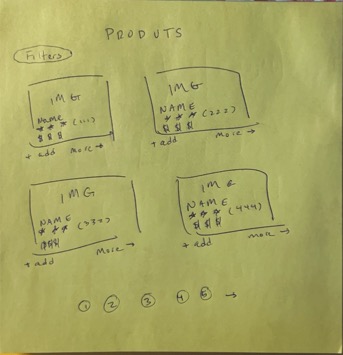 PRODUTS
Filters
IMG
NAME
* * * (111)
$ $ $
+ add more →
IMG
NAME
* * * (222)
$ $ $
+ add more →
IMG
NAME
* * * (333)
$$$
+ add more →
IMG
NAME
* * * (444)
$ $ $
+ add more →
1 2 3 4 5 →